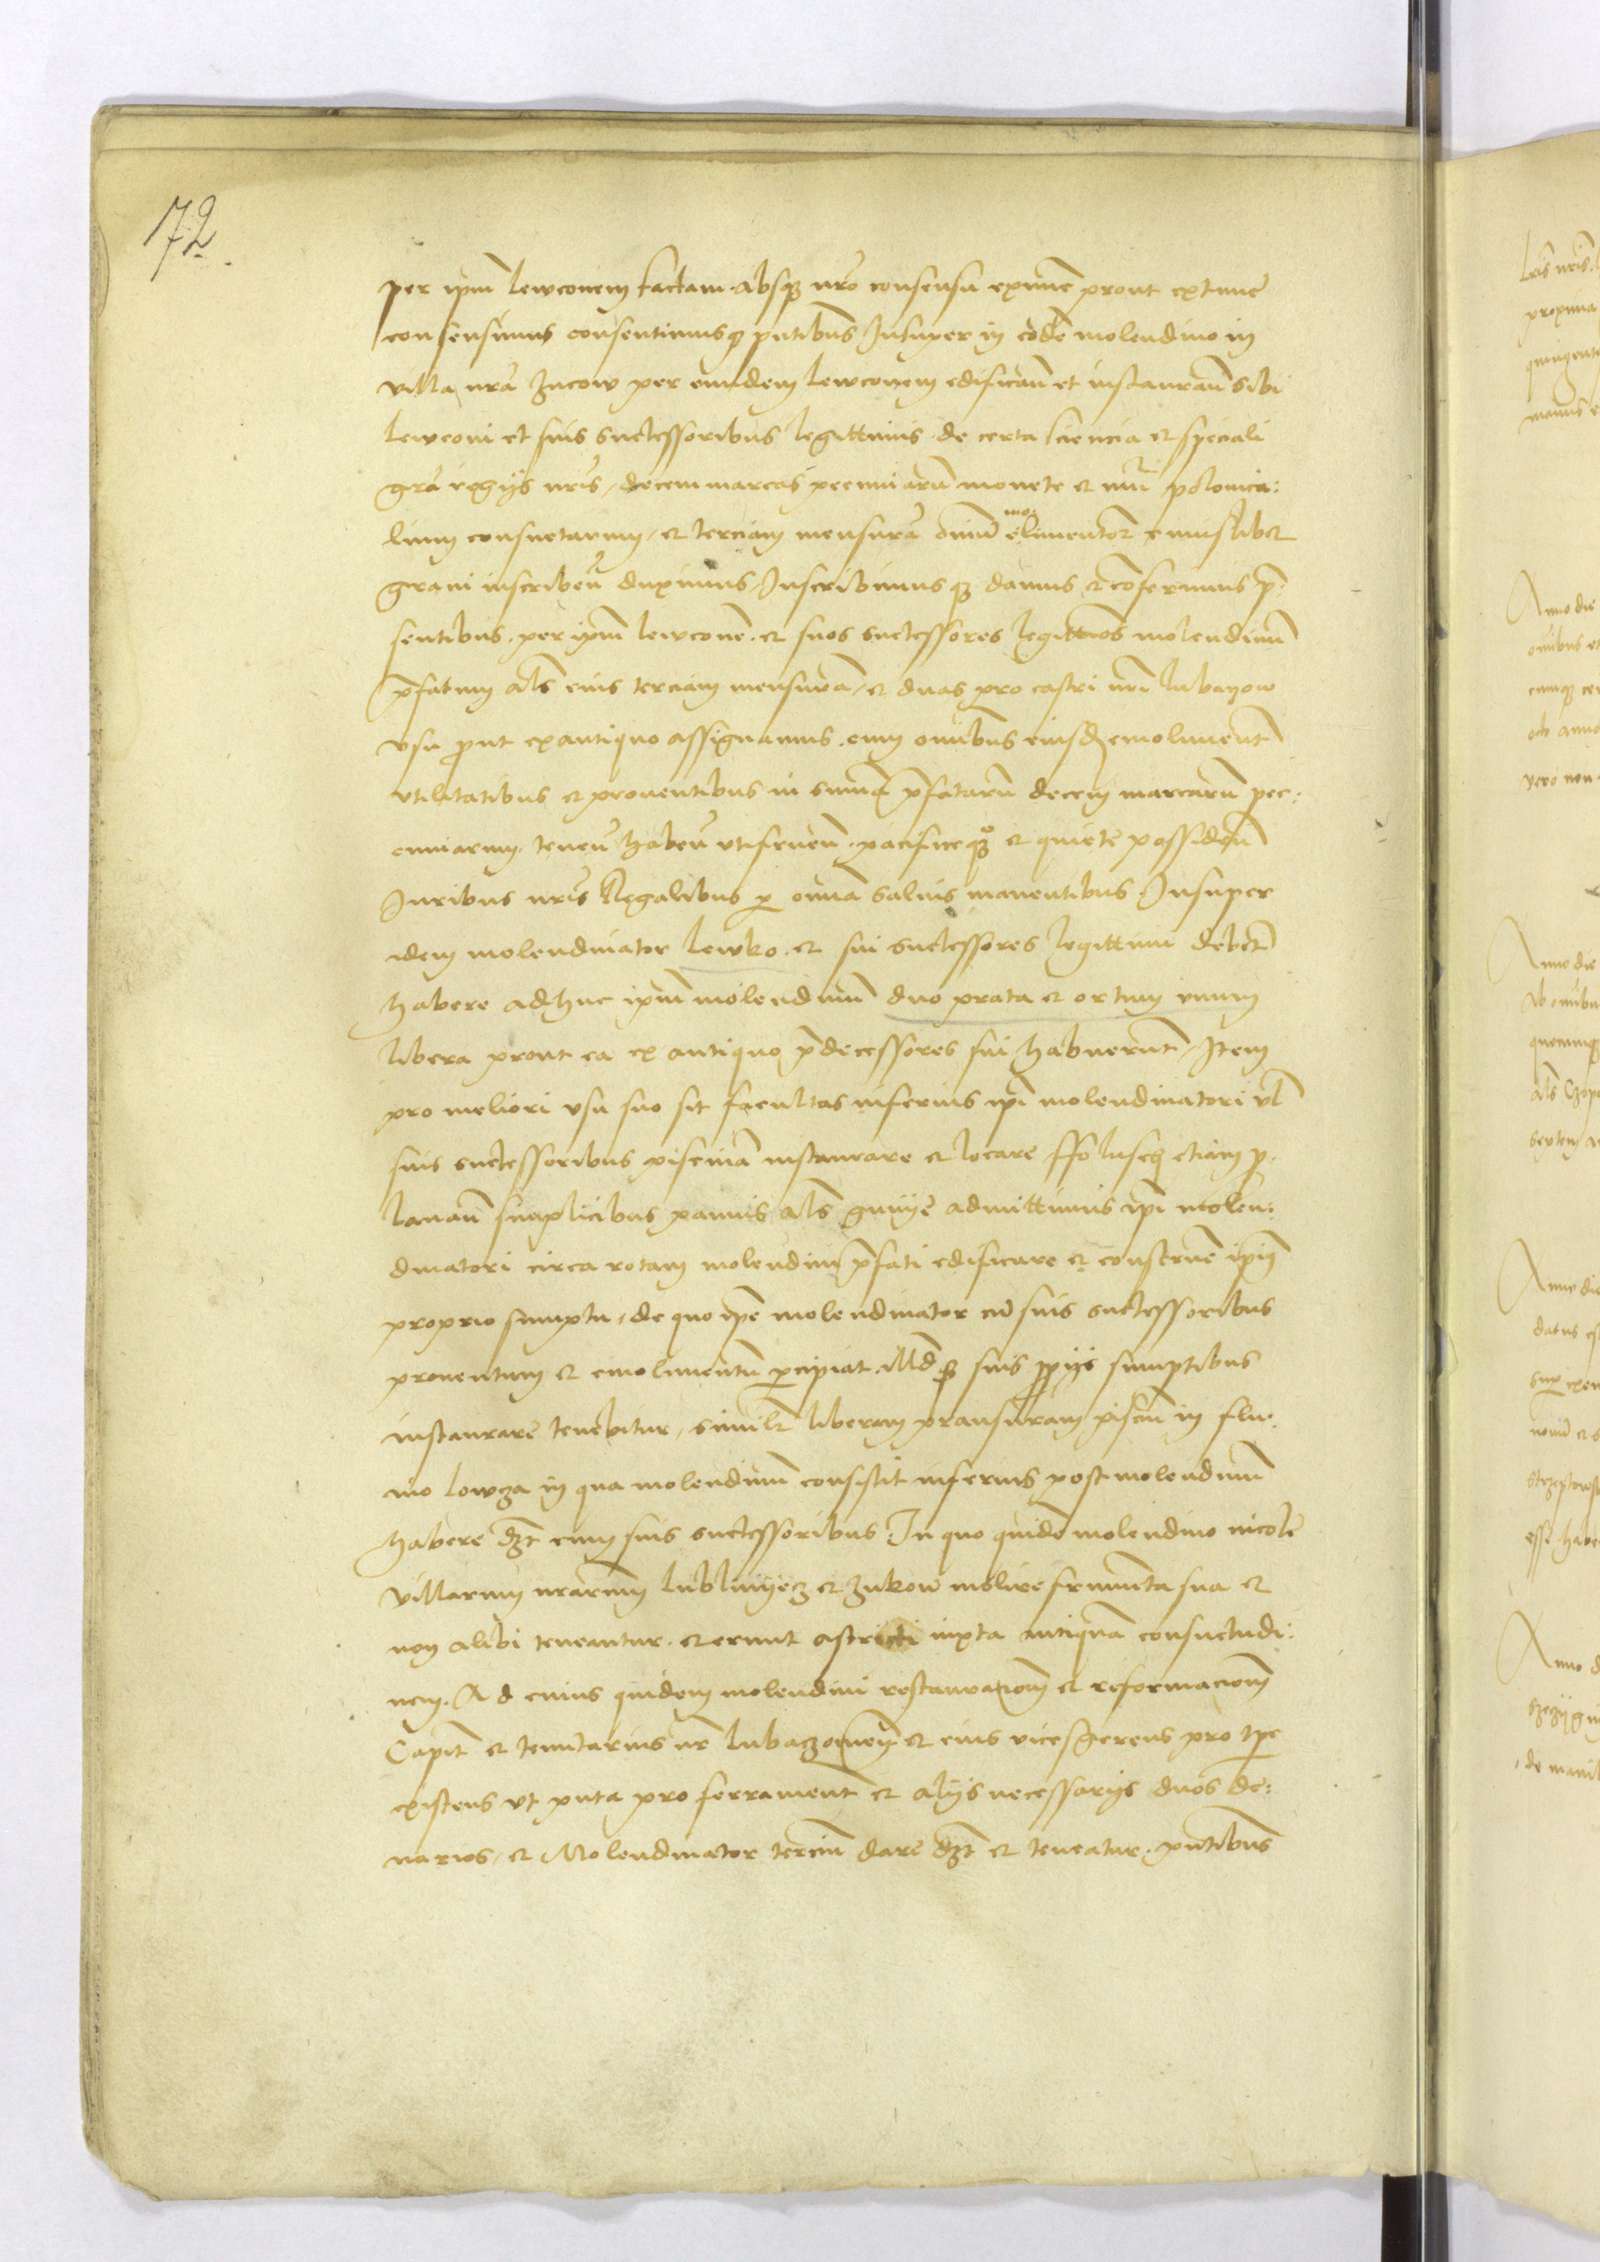 72.
per ipm̄ lewconem factam absq3 nro consensu ex nunc prout ex tunc
consensimus consentimusq3 pntibus Insuper in eodē molendino in
villa nrā zucow per eundem lewconem edificań et instaurań sibi
lewconi et suis successoribus legittimis de certa sciencia et speciali
grā regijs nris, decem marcas pecuniarū monete et nuī polonica:
lium consuetarum, et terciam mensurā omniū emolimentor cuiuslibet
grani inscribeń duximus, Inscribimusq3 damus et conferimus p̄:
sentibus. per ipm̄ lewconē. et suos successores legittimos molendinū
p̄fatum als eius terciam mensurā, et duas pro castri nri lubaczow
vsu prout ex antiquo assignamus. cum omibus eiusd emolument
vtilitatibus et prouentibus in summa p̄fatarū decem marcarū pec:
cuniarum. teneń habeń vtifrueń. pacificeq3 et quiete possideń
Juribus nris Regalibus p omnia saluis manentibus Insuper
idem molendinator lewko. et sui successores legittimi debet
habere adhuc ipm̄ molendinū duo prata et ortum vnum
libera prout ea ex antiquo p̄decessores sui habuerunt, Item
pro meliori vsu suo sit facultas inferius ipi molendinatori vl
suis successoribus piscinā instaurare et locare ffoluschq etiam p̄:
lanań simplicibus pannis als gunye admittimus ipi molen:
dinatori circa rotam molendini p̄fati edificare et conseruē ipius
proprio sumptu, de quo ipe molendinator cū suis successoribus
prouentum et emolimentū pcipiat. Illd suis ppijs sumptibus
instaurare tenebitur, similr liberam pransuram pisciū in flu:
uio lowcza in qua molendinū consistit inferius post molendinū
habere dzt cum suis successoribus In quo quidē molendino incole
villarum nrarum lublinyecz et zukow molere frumenta sua et
non alibi teneantur. et erunt astricti iuxta antiquā consuetudi:
nem. Ad cuius quidem molendini restauracionem et reformacionem
Capit et tenutarius nr lubaczowien et eius vicesgerens pro tpe
existens vt puta pro ferrament et alijs necessarijs duos de:
narios, et Molendinator terciū dare dzt et teneatur. pntibus